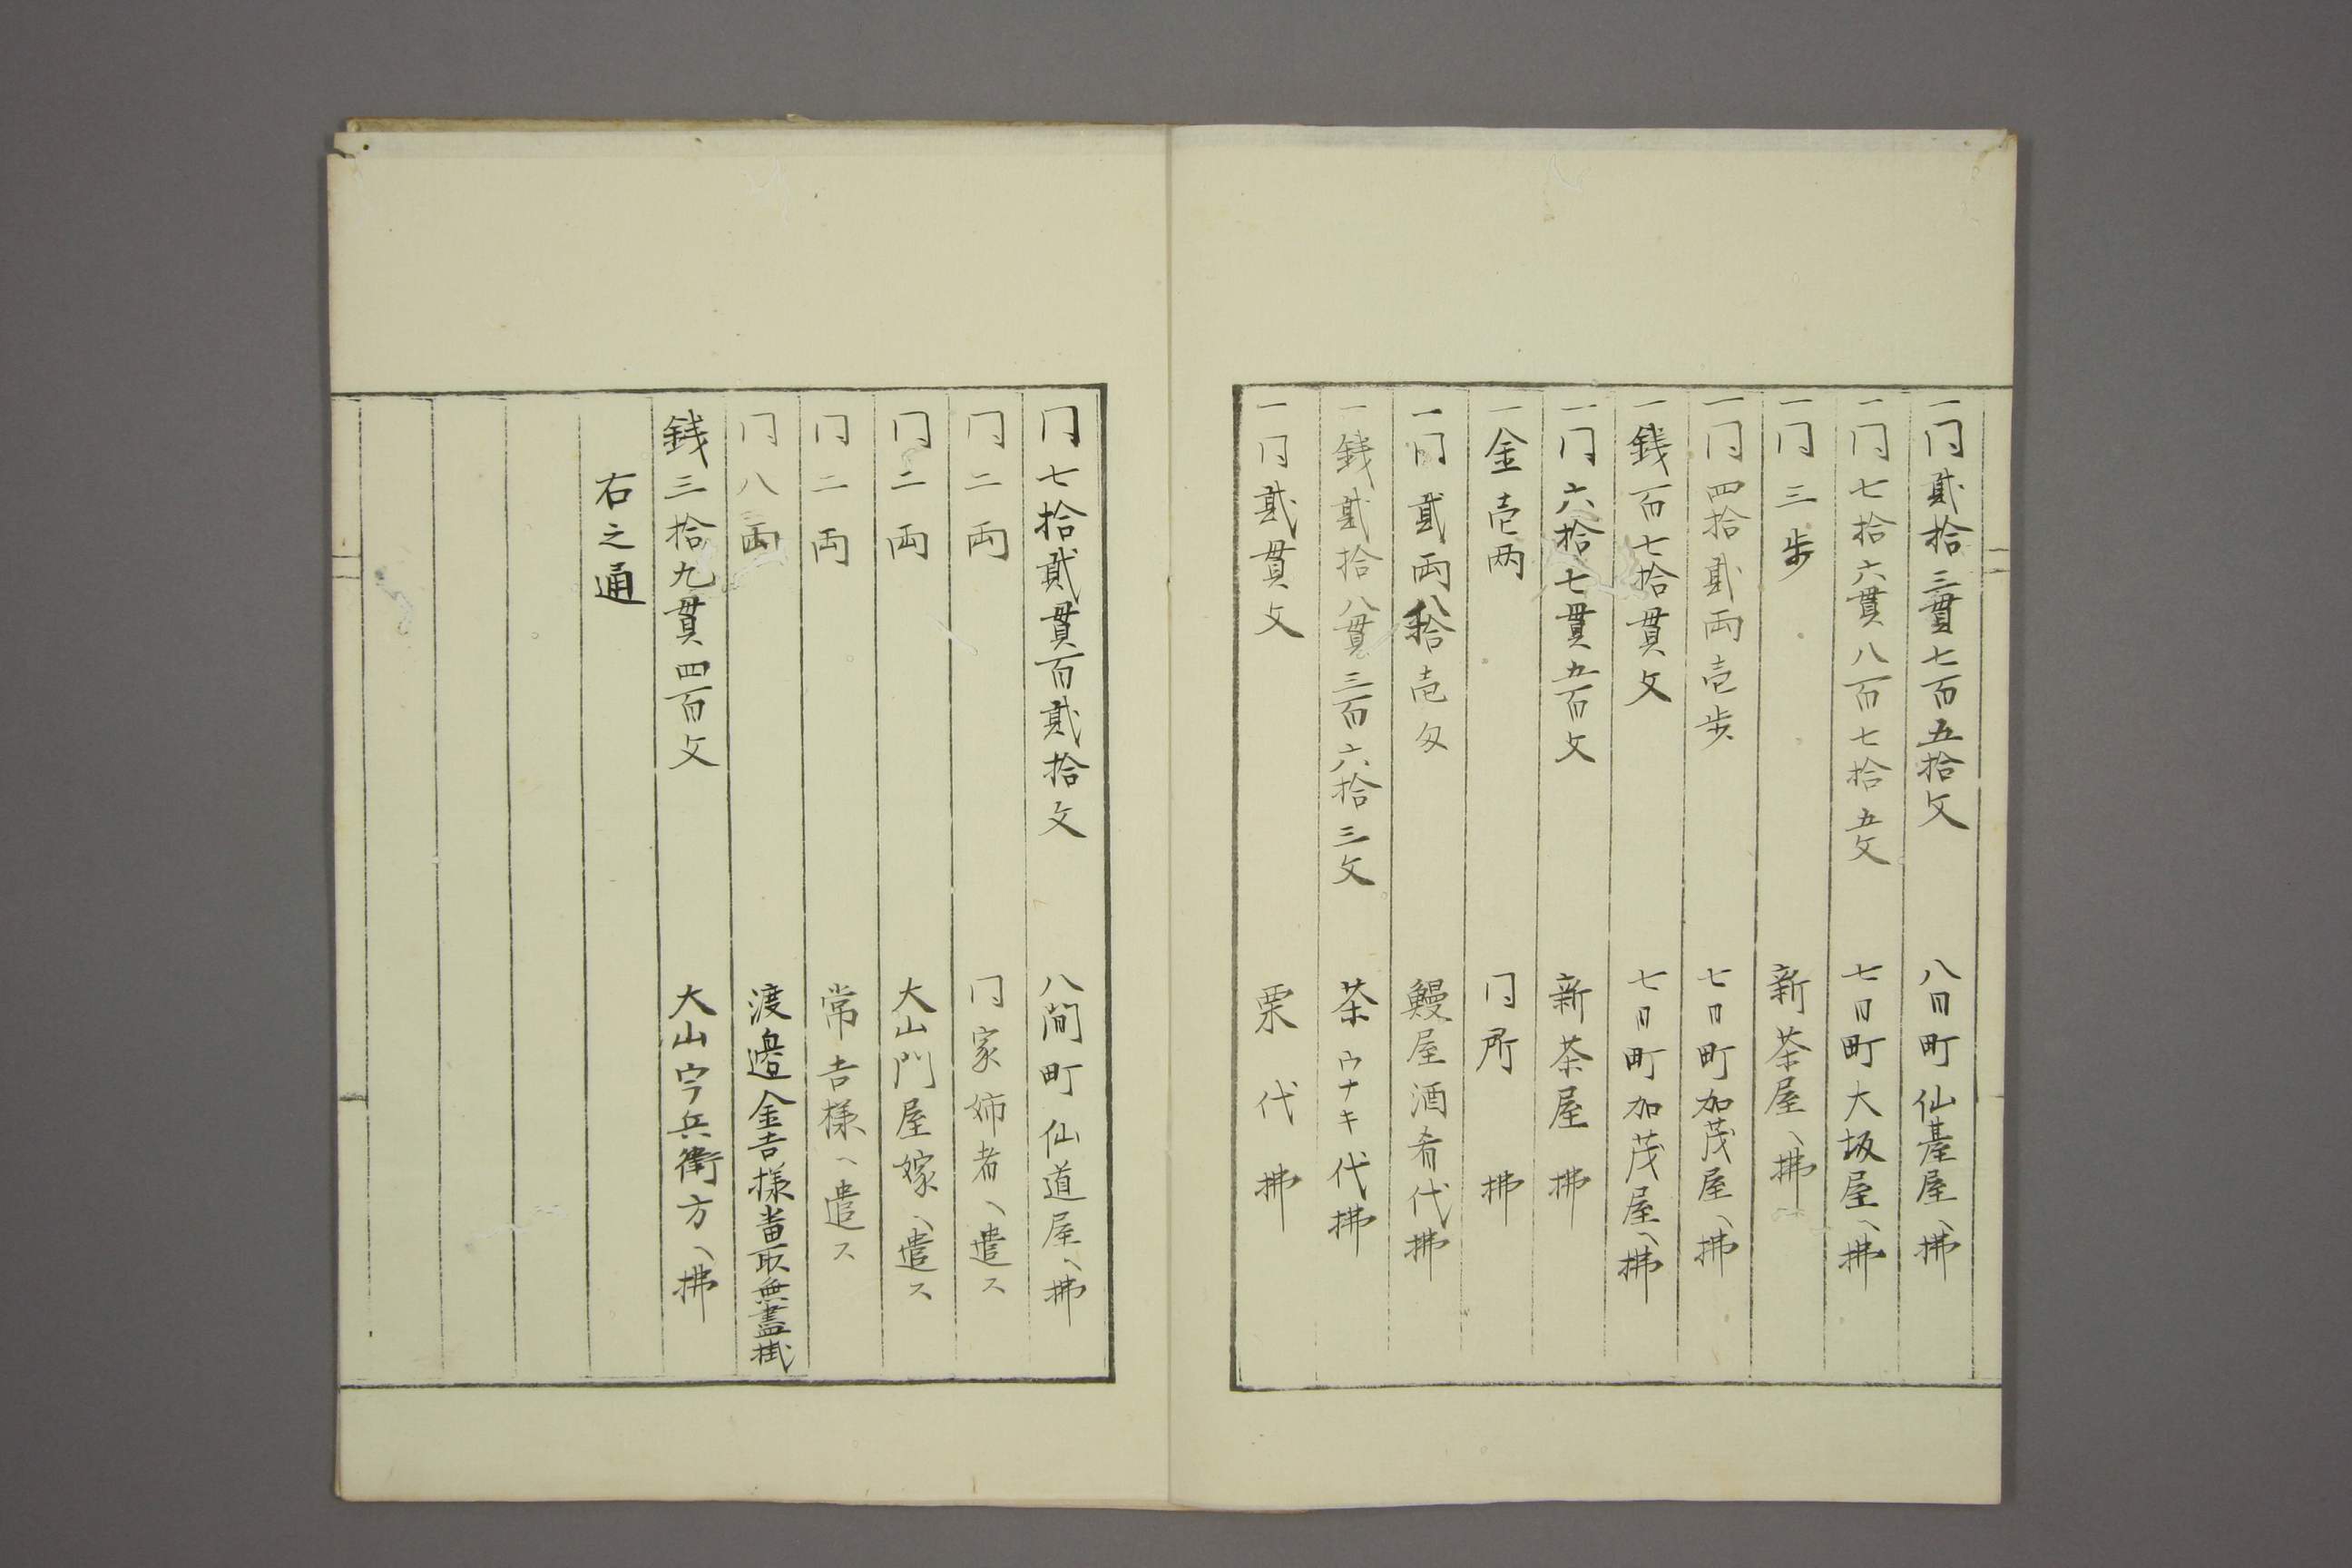 一同貳拾三貫七百五拾文　八日町仙臺屋へ拂
一同七拾六貫八百七拾五文　七日町大坂屋へ拂
一同三歩　新茶屋へ拂
一同四拾貳両壱歩　七日町加茂屋へ拂
一銭百七拾貫文　七日町加茂屋へ拂
一同六拾七貫五百文　新茶屋拂
一金壱両　同所拂
一同貳両拾壱匁　鰻屋酒肴代拂
一銭貳拾八貫三百六拾三文　茶ウナキ代拂
一同貳貫文　栗代拂
同七拾貳貫百貳拾文　八間町仙道屋へ拂
同二両　同家姉者へ遣ス
同二両　大山門屋嫁へ遣ス
同二両　常吉様へ遣ス
同八両　渡邉金吉様當取無盡掛
銭三拾九貫四百文　大山宇兵衛方へ拂
右之通